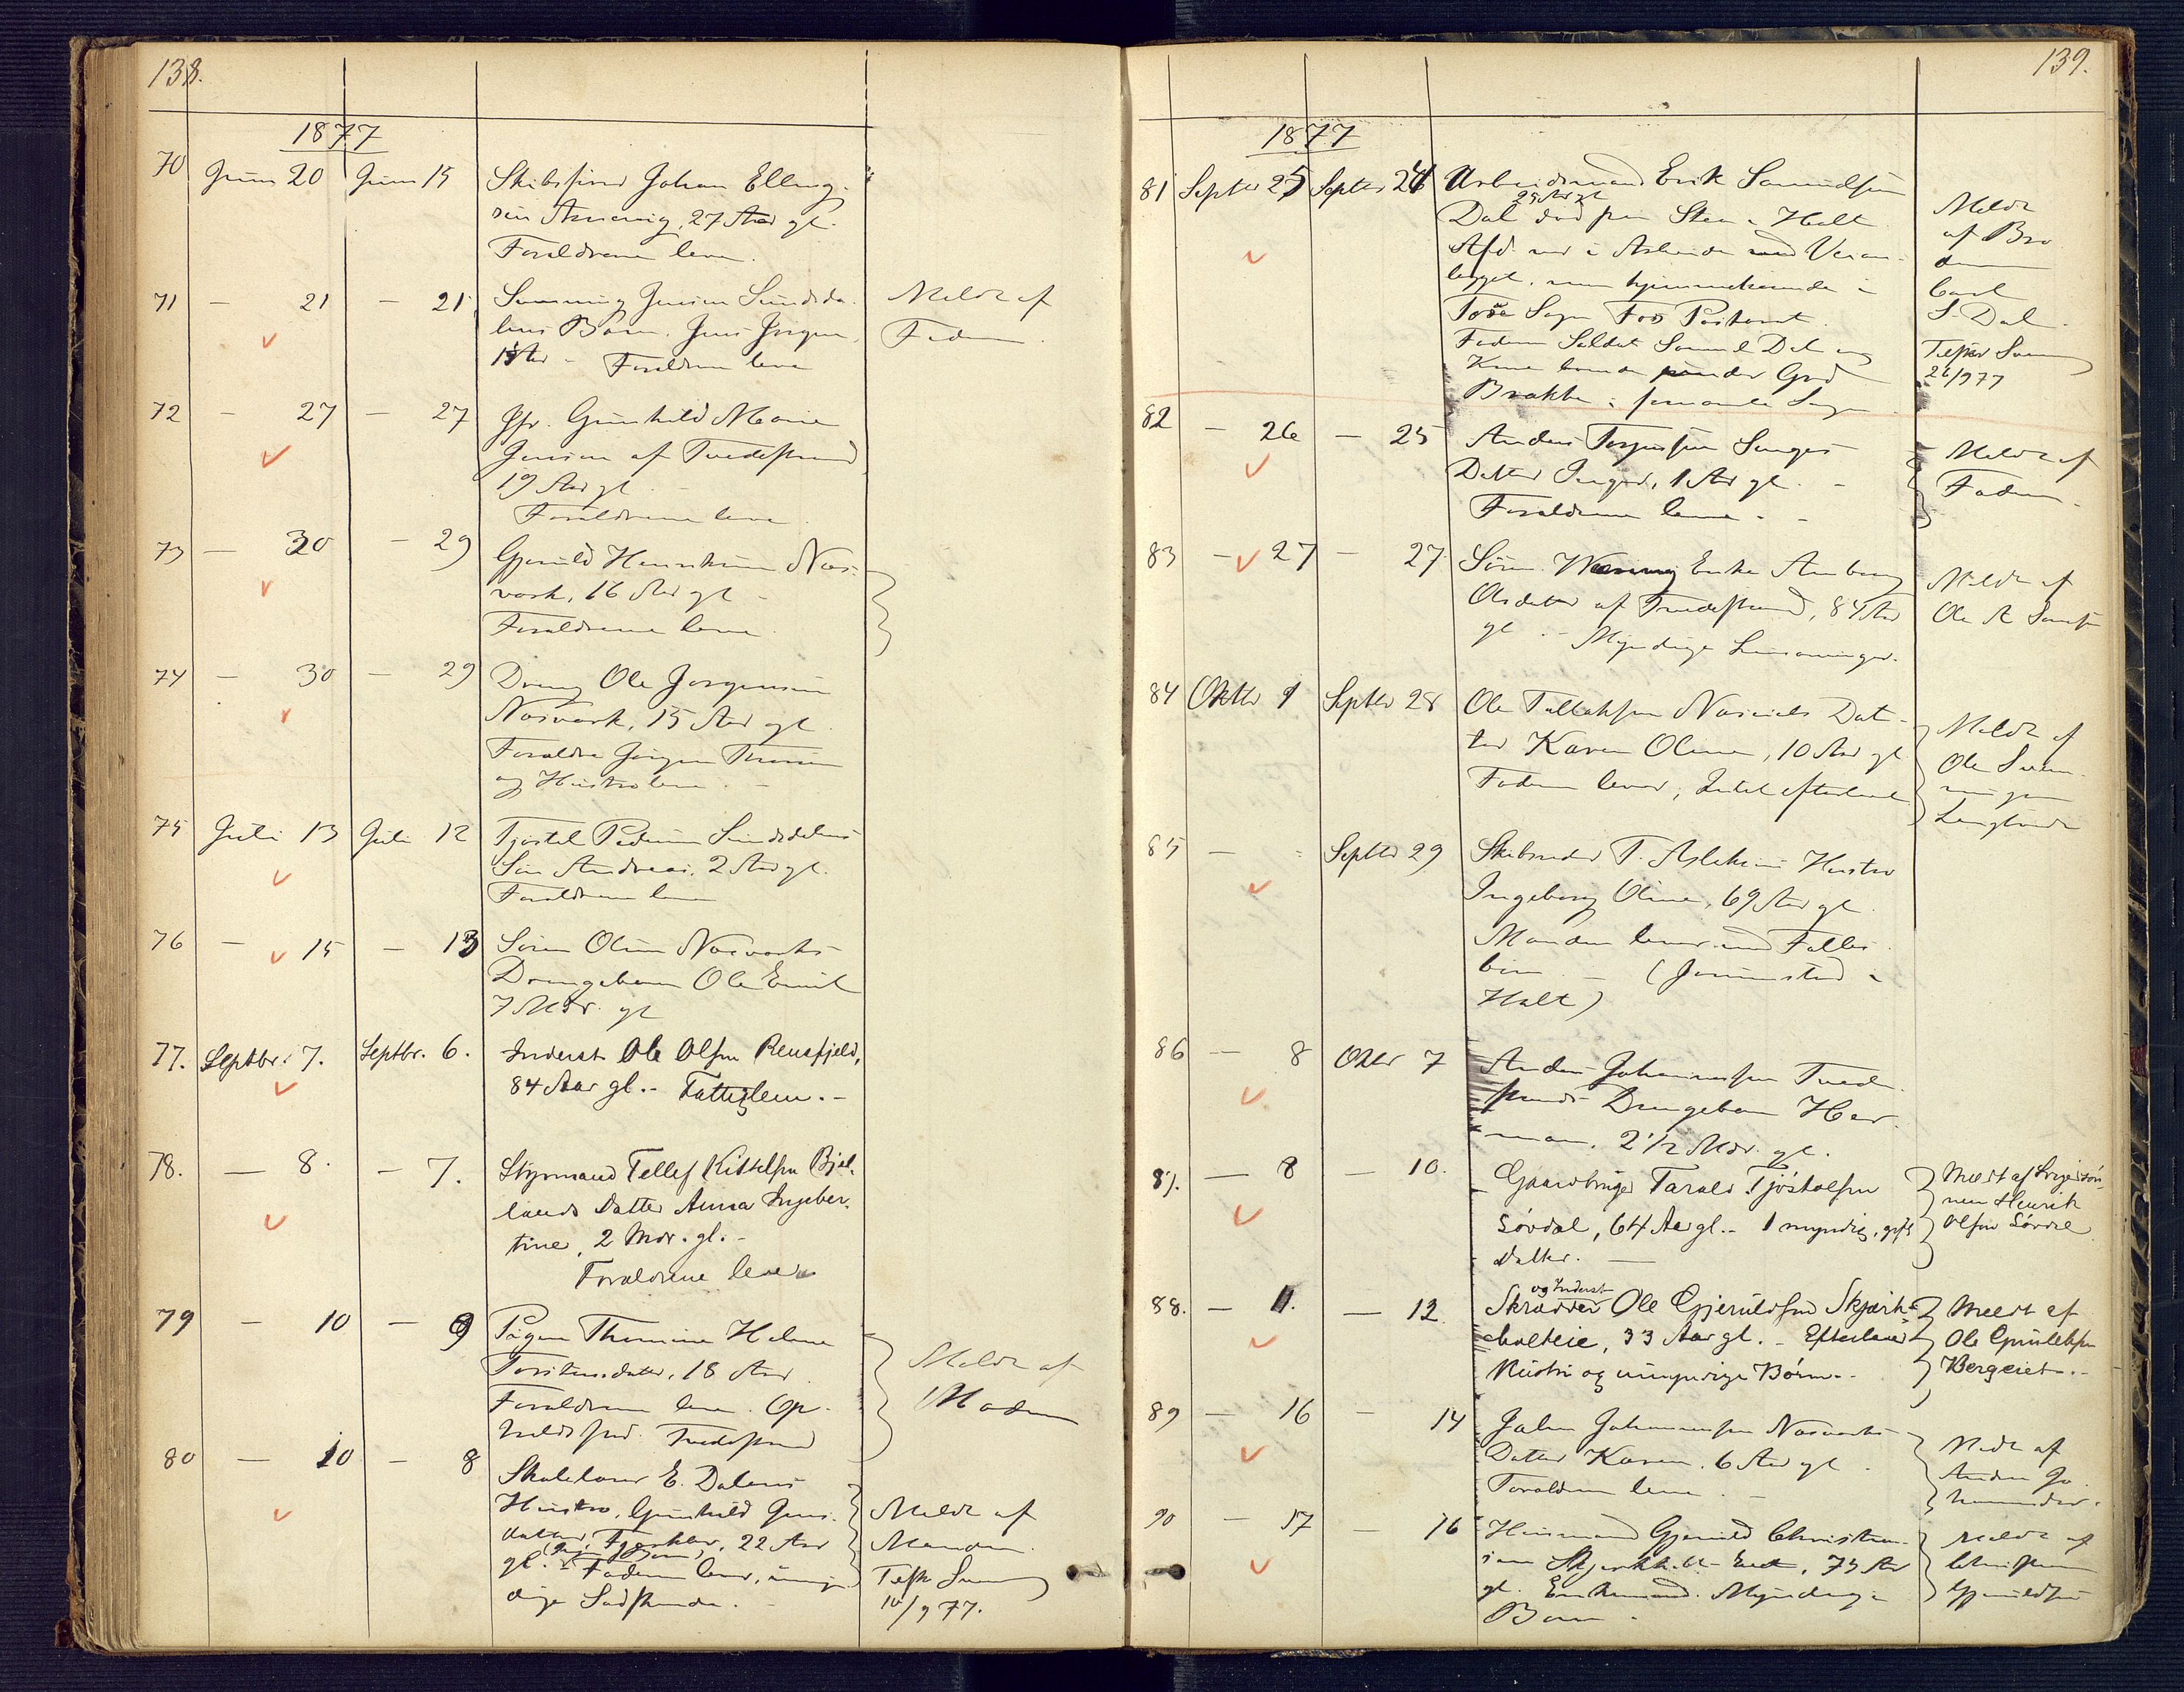 138.
1877
70 Juni 20 Juni 15 Skibsfører Johan Elling-
sen, 27 Aar gl.
Forældrene leve.
71 — 21 — 21 Jensen Sundsda-
lens Barn, Jens Jørgen,
Aar - Forældrene leve
Meldt af
Faderen.
72 — 27 — 27 Gunhild Marie
Jensen af Tvedestrand
19 Aar gl. -
Forældrene leve.
73 — 30 — 29 Gjeruld Henriksen Næs-
værk, 16 Aar gl -
Forældrene leve.
74 — 30 — 29 Dreng Ole Jørgensen
Næsværk, 15 Aar gl.
Forældre Jørgen
og Hustro leve. -
75 Juli 13 Juli 12 Pedersen Sundsdalens
Søn Andreas, 2 Aar gl.
Forældrene leve
76 — 15 — 13 Søren Olsen Næsværks
Drengebarn Ole Emil
7 Mdr. gl
77. Septbr. 7. Septbr. 6. Inderst Ole Olsen Rensfjeld,
84 Aar gl. - Fattiglem. -
78. — 8. — 7. Styrmand Tellef Kittelsen Bjel-
lands Datter Anna Ingeber-
tine, 2 Mdr. gl. -
Forældrene lever
79 — 10 — 9 Pigen Thomine Helene
Torstensdatter, 18 Aar
Forældrene leve. Op-
holdssted Tvedestrand
Meldt af
Moderen
80 — 10 — 8 Skolelærer E. Dalens
Hustro, Gunhild Jens-
datter, 22 Aar
gl. - Faderen lever, umyn-
dige Sødskende. -
Meldt af
Manden.
10/9 77.
139.
1877
81 Septbr 25 Septbr 24 Arbeidsmand Erik Samuelsen
29 Aar gl
Dal død paa Stea i Holt
Afd. var i Arbeide ved Veian-
lægget, men hjemmehørende i
Sogn Fos Præstegt.
Faderen Soldat Samuel Dal og
Kone Grd
Brække i samme Sogn.
Meldt
af Bro
deren
Carl
S. Dal.
26/9 77
82 — 26 — 25 Anders Terjesen Songes
Datter Inger, 1 Aar gl. -
Forældrene leve. -
Meldt af
Faderen.
83 — 27 — 27. Søren Enke Anborg
Olsdatter af Tvedestrand, 84 Aar
gl. - Myndige Livsarvinger.
Meldt af
Ole A
84 Oktbr 1 Septbr 28 Ole Tallaksen Næs Dat-
ter Karen Oline, 10 Aar gl
Faderen lever, Intet efterladt
Meldt af
Ole
85 — Septbr 29 Skibsreder T. Aslaksens Hustro
Ingeborg Oline, 69 Aar gl.
Manden lever med Fælles-
bø. - (
Holt)
86 — 8 Oktbr 7 Anders Johannesen Tvede-
strands Drengebarn Her-
man, 2 1/2 Mdr. gl.
87. — 8 — 10. Gaardbruger Tarald Tjøstolfsen
Søvdal, 64 Aar gl. - 1 myndig, gift
Datter. —
Meldt af Svigersøn-
nen Henrik
Olsen Søvdal
88. — 11. — 12. og Inderst
Skrædder Ole Gjeruldsen Skjærk-
holteie, 33 Aar gl. - Efterlader
Hustru og umyndige Børn. -
Meldt af
Ole
Bergeiet. -
89 — 16 — 14 Johannesen Næsværks
Datter Karen, 6 Aar gl.
Forældrene leve. -
Meldt af
Anders Jo-
90 — 17 — 16 Huusmand Gjeruld Christen-
sen Skjerkholt Eiet, 75 Aar
gl. Enkemand. Myndige
Børn -
Meldt af
Christen
Gjeruldsen